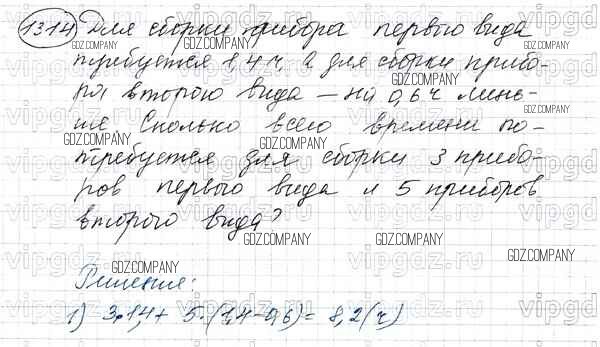 1314 Для сборки прибора первого вида
требуется 1,4 ч, а для сборки прибо-
ра второго вида — на 0,6 ч мень-
ше Сколько всего времени по-
требуется для сборки 3 прибо-
ров первого вида и 5 приборов
второго вида?
Решение:
1) 3·1,4 + 5·(1,4-0,6) = 8,2 (ч)
GDZ.COMPANY
vipgdz.ru